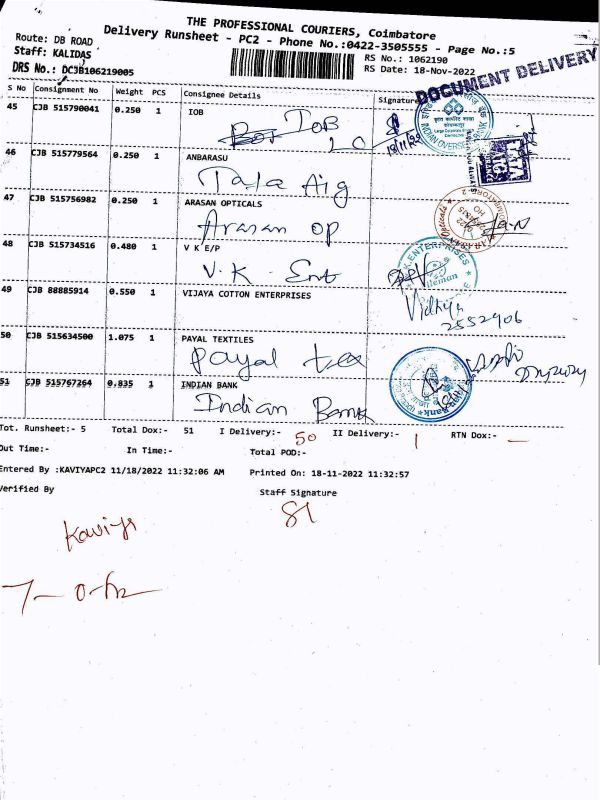 THE PROFESSIONAL COURIERS, Coimbatore
Delivery Runsheet - PC2 - Phone No.:0422-3505555 - Page No.:5
Route: DB ROAD
Staff: KALIDAS
DRS No.: DCJB106219005
RS No.: 1062190
RS Date: 18-Nov-2022
DOCUMENT DELIVERY
S No Consignment No Weight PCS Consignee Details Signature
45 CJB 515790041 0.250 1 IOB
IOB
46 CJB 515779564 0.250 1 ANBARASU
Tata Aig
47 CJB 515756982 0.250 1 ARASAN OPTICALS
Arasan op
48 CJB 515734516 0.480 1 V K E/P
V.K. Ent
49 CJB 88885914 0.550 1 VIJAYA COTTON ENTERPRISES
Vidhya
2552906
50 CJB 515634500 1.075 1 PAYAL TEXTILES
Payal tex
51 CJB 515767264 0.835 1 INDIAN BANK
Indian Bank
Tot. Runsheet:- 5 Total Dox:- 51 I Delivery:- 50 II Delivery:- 1 RTN Dox:- —
Out Time:- In Time:- Total POD:-
Entered By :KAVIYAPC2 11/18/2022 11:32:06 AM Printed On: 18-11-2022 11:32:57
Verified By Staff Signature
Kaviya